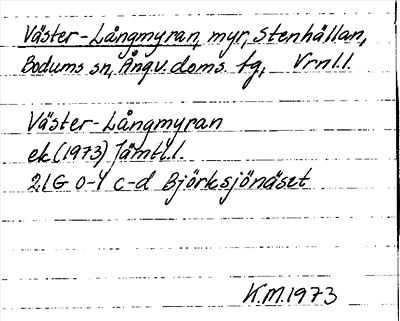 Väster-Långmyran, myr, Stenhällan,
Bodums sn, Ångv. doms. fg, Vrnl.l.
Väster-Långmyran
ek (1973) Jämtl.l.
21G 0-1 c-d Björksjönäset
K.M. 1973